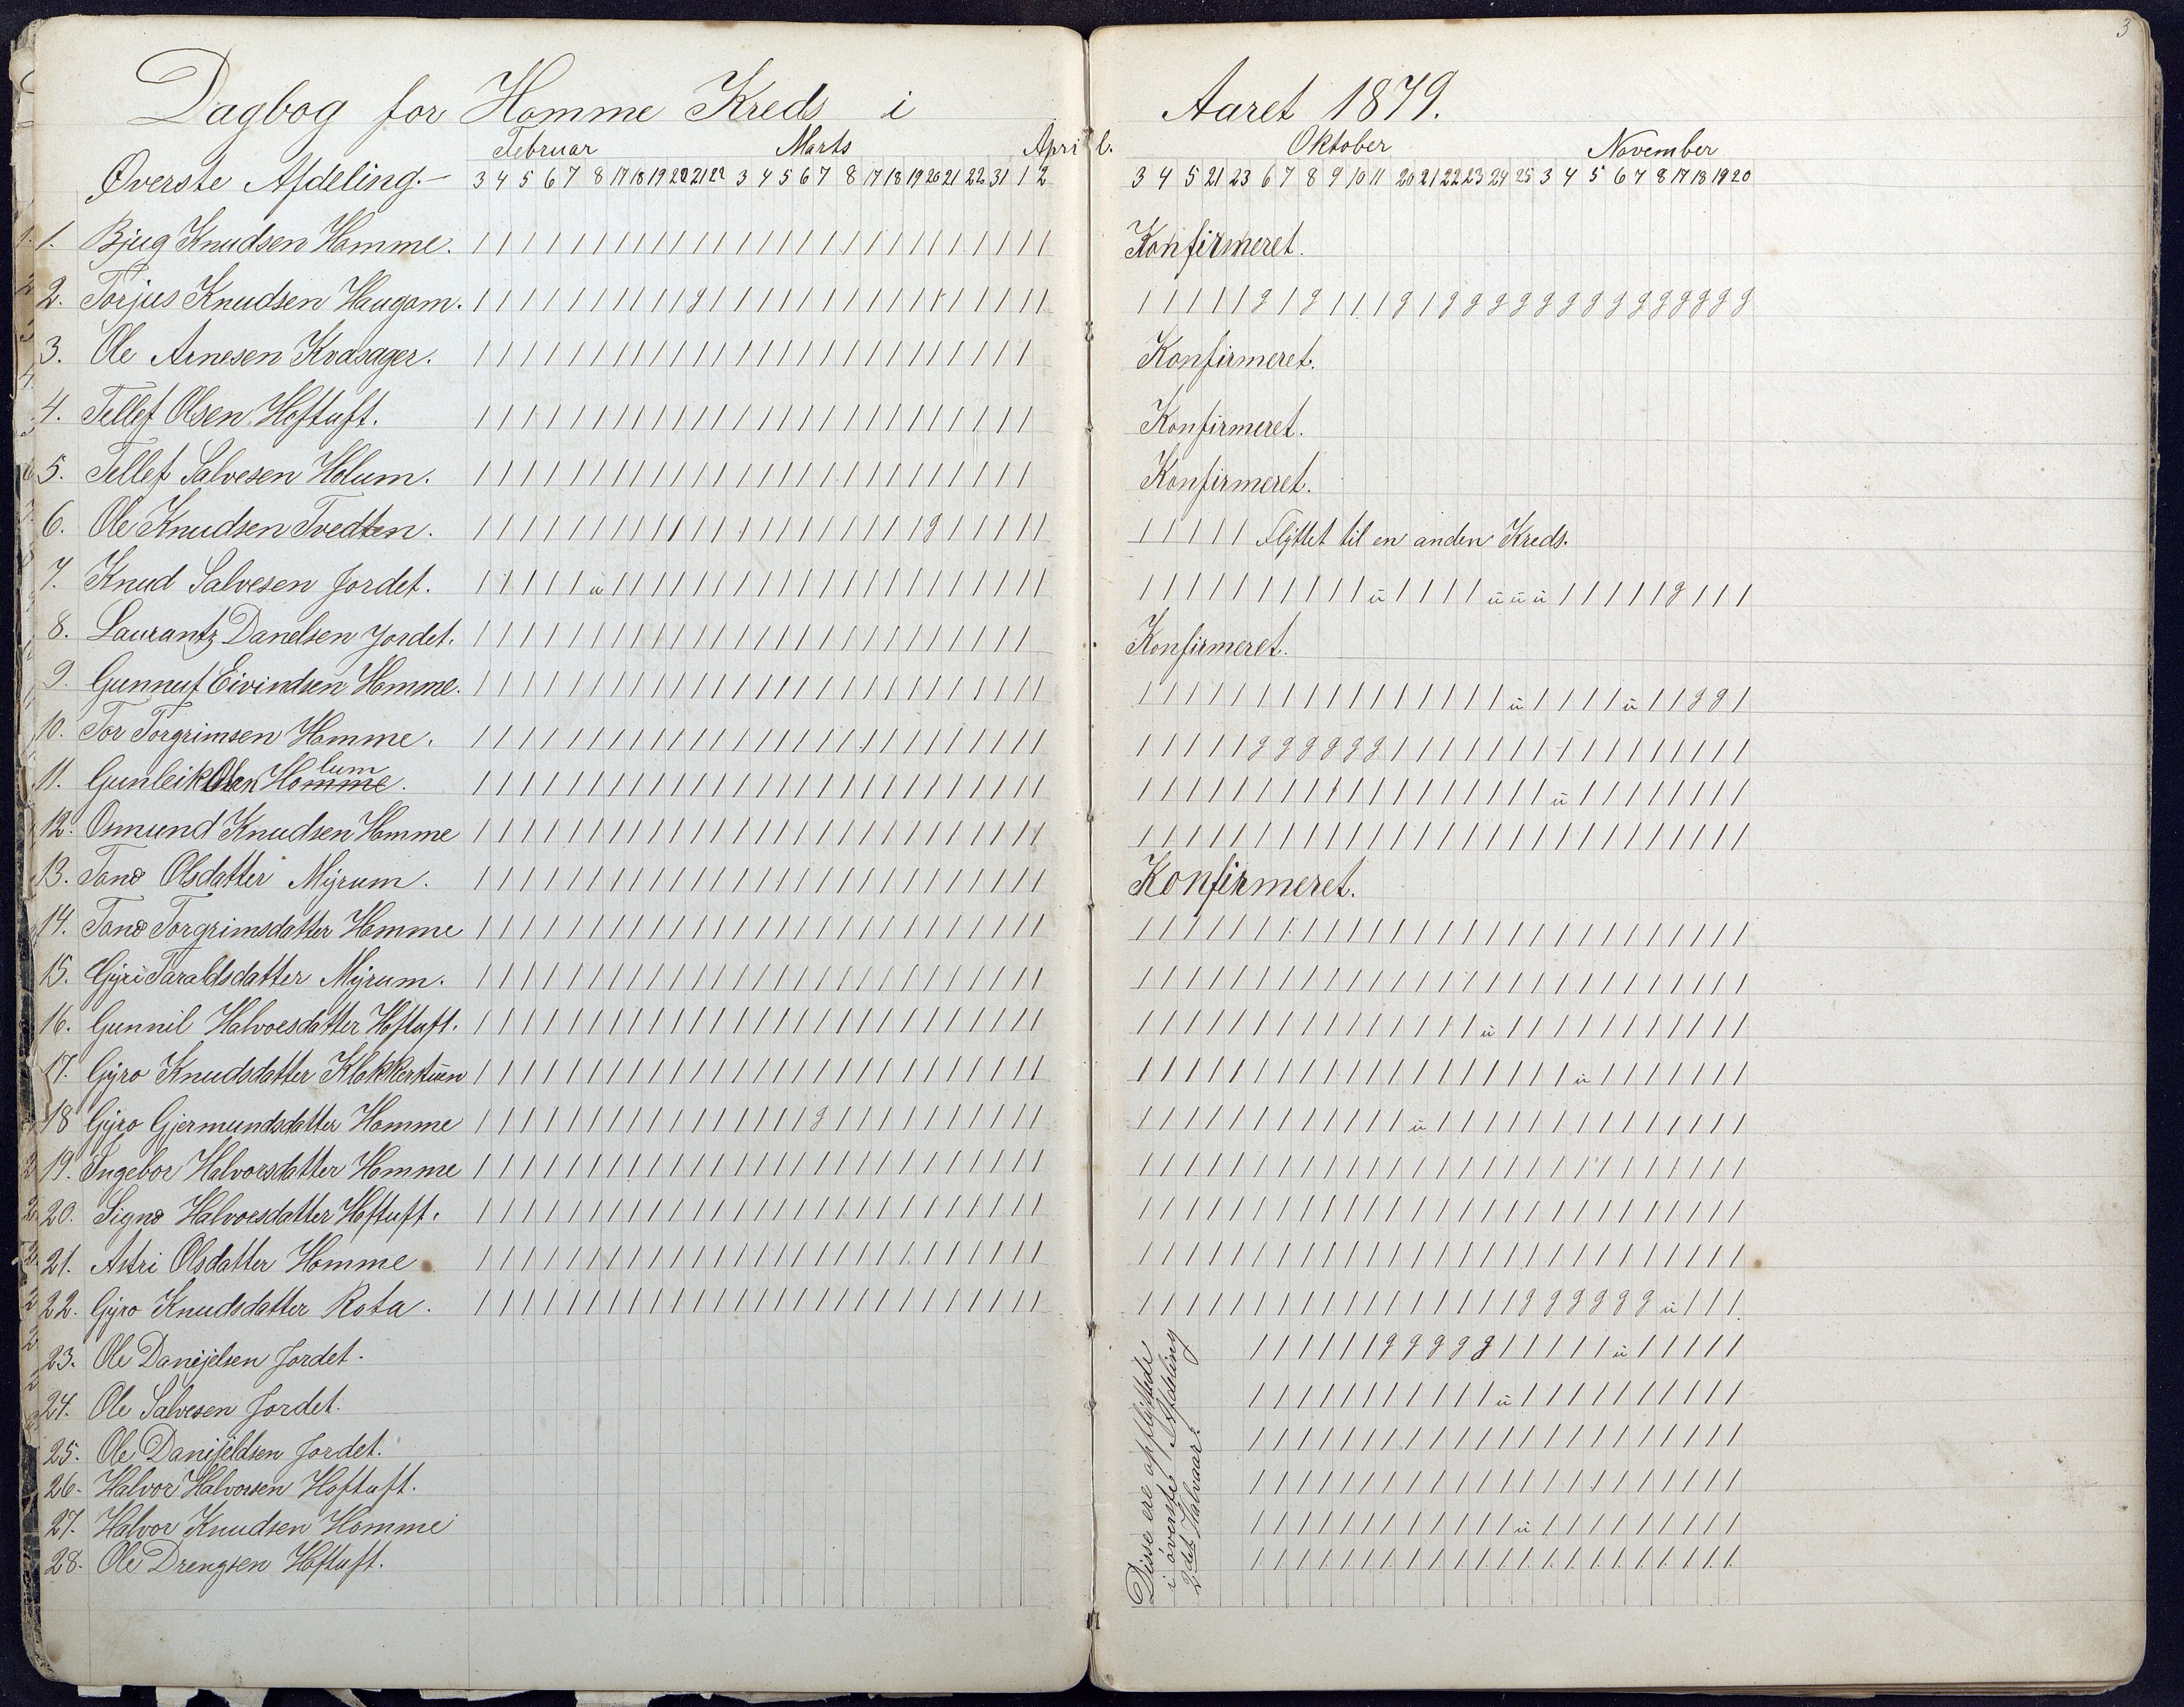 3
Dagbog for Homme Kreds i Aaret 1879.
Februar Marts April. Oktober November
Øverste Afdeling.- 3 4 5 6 7 8 17 18 19 20 21 22 3 4 5 6 7 8 17 18 19 20 21 22 31 1 2 3 4 5 21 23 6 7 8 9 10 11 20 21 22 23 24 25 3 4 5 6 7 8 17 18 19 20
1. Bjug Knudsen Homme. Konfirmeret.
2. Torjus Knudsen Haugom.
3. Ole Arnesen Kvasager. Konfirmeret.
4. Tellef Olsen Hoftuft. Konfirmeret.
5. Tellef Salvesen Holum. Konfirmeret.
6. Ole Knudsen Tvedten. Flyttet til en anden Kreds.
7. Knud Salvesen Jordet.
8. Laurantz Danelsen Jordet. Konfirmeret.
9. Gunnuf Eivindsen Homme.
10. Tor Torgrimsen Homme.
11. Gunleik Olsen Homme. lum
12. Osmund Knudsen Homme
13. Tone Olsdatter Myrum. Konfirmeret.
14. Tone Torgrimsdatter Homme
15. Gyri Taraldsdatter Myrum.
16. Gunnil Halvorsdatter Hoftuft.
17. Gyro Knudsdatter Klokkerstuen
18 Gyro Gjermundsdatter Homme
19. Ingebor Halvorsdatter Homme
20. Signe Halvorsdatter Hoftuft.
21. Astri Olsdatter Homme
22. Gyro Knudsdatter Rota.
23. Ole Danijelsen Jordet.
24. Ole Salvesen Jordet.
25. Ole Danijeldsen Jordet.
26. Halvor Halvorsen Hoftuft.
27. Halvor Knudsen Homme
28. Ole Drengsen Hoftuft.
Disse ere opflyttede
i øverste Afdeling
2det Halvaar.